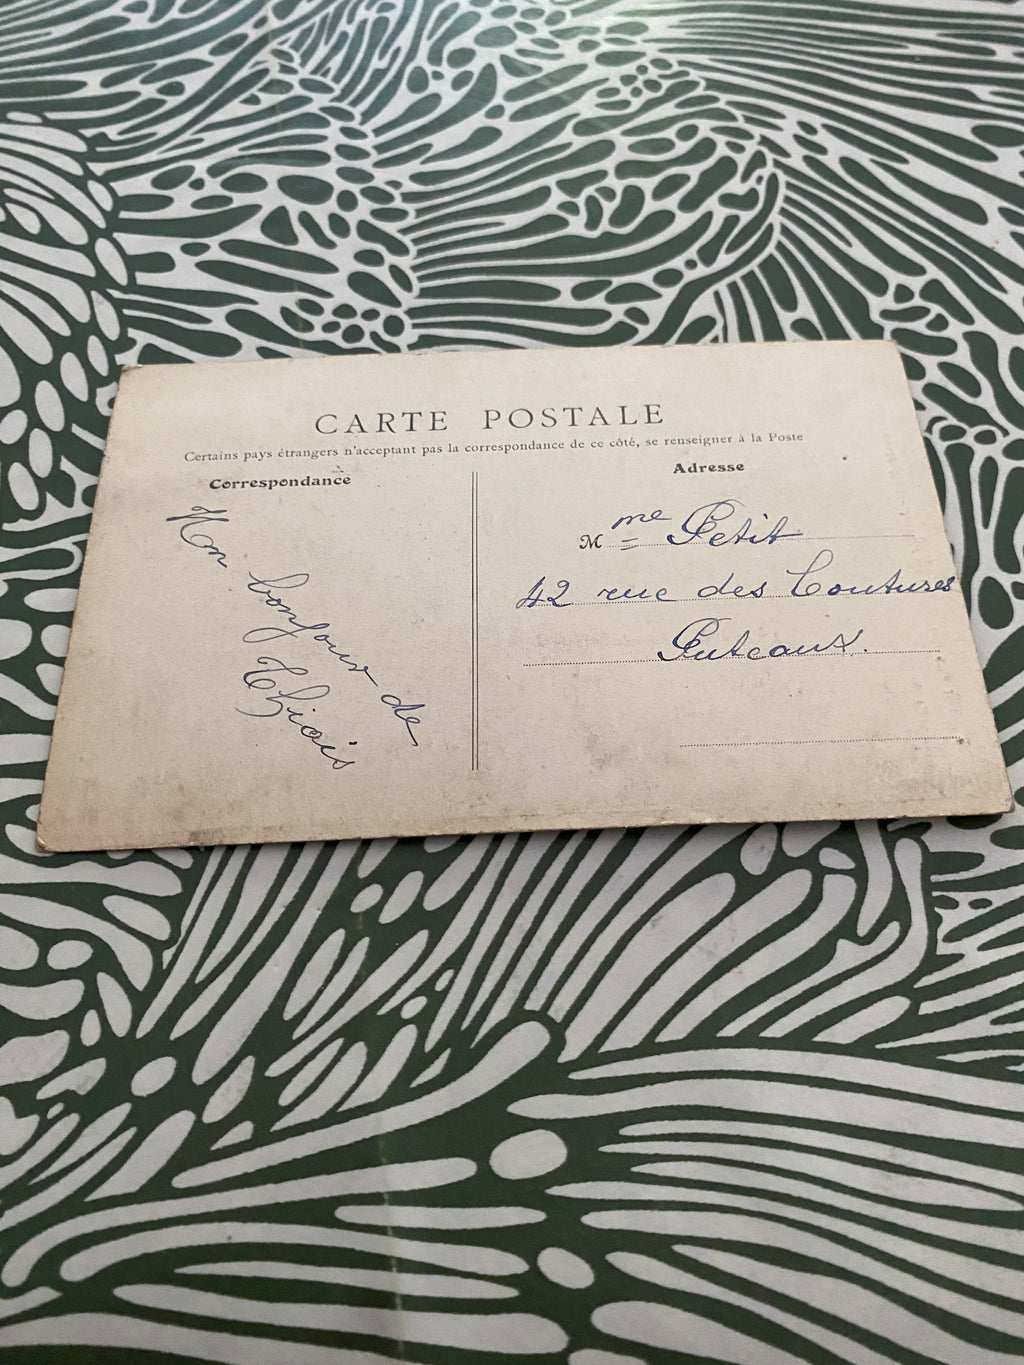 CARTE POSTALE
Certains pays étrangers n'acceptant pas la correspondance de ce côté, se renseigner à la Poste
Correspondance
Un bonjour de
Thiais
Adresse
Mme Petit
42 rue des Coutures
Puteaux.